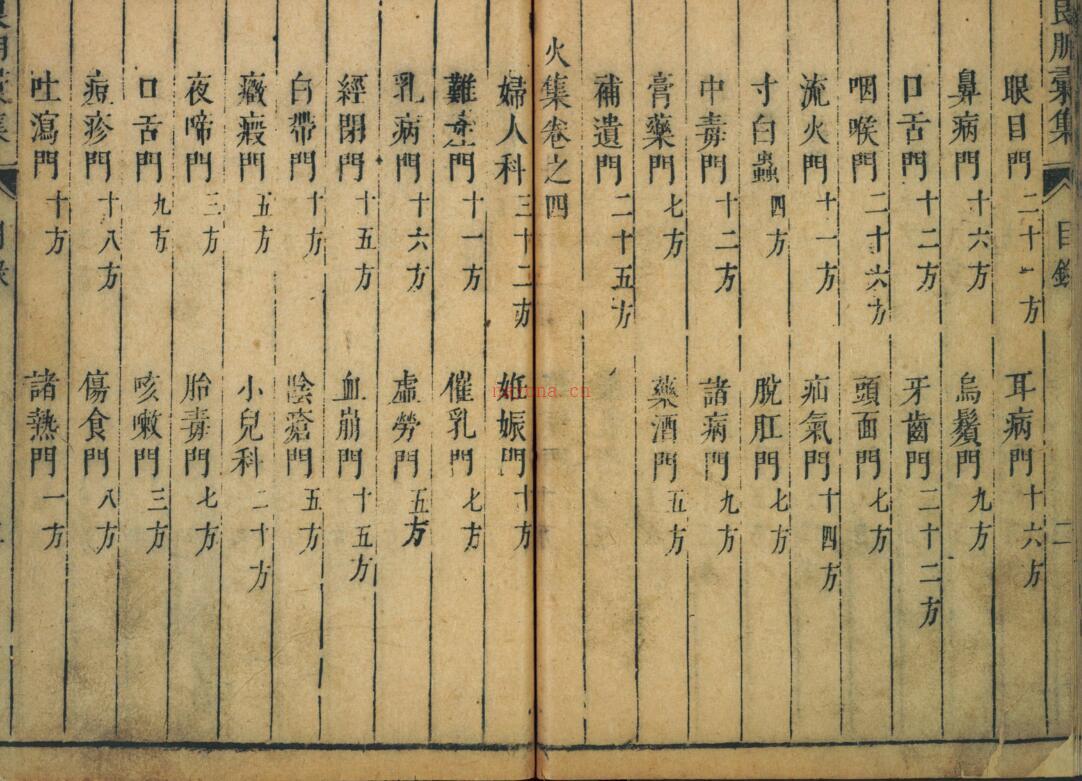 良朋彙集 目錄 二
眼目門 二十一方 耳病門 十六方
鼻病門 十六方 烏鬚門 九方
口舌門 十二方 牙齒門 二十二方
咽喉門 二十六方 頭面門 七方
流火門 十一方 疝氣門 十四方
寸白蟲 四方 脫肛門 七方
中毒門 十二方 諸病門 九方
膏藥門 七方 藥酒門 五方
補遺門 二十五方
火集卷之四
婦人科 三十二方 妊娠門 十方
難產門 十一方 催乳門 七方
乳病門 十六方 虛勞門 五方
經閉門 十五方 血崩門 十五方
白帶門 十方 陰瘡門 五方
癥瘕門 五方 小兒科 二十方
夜啼門 三方 胎毒門 七方
口舌門 九方 咳嗽門 三方
痘疹門 十八方 傷食門 八方
吐瀉門 十方 諸熱門 一方